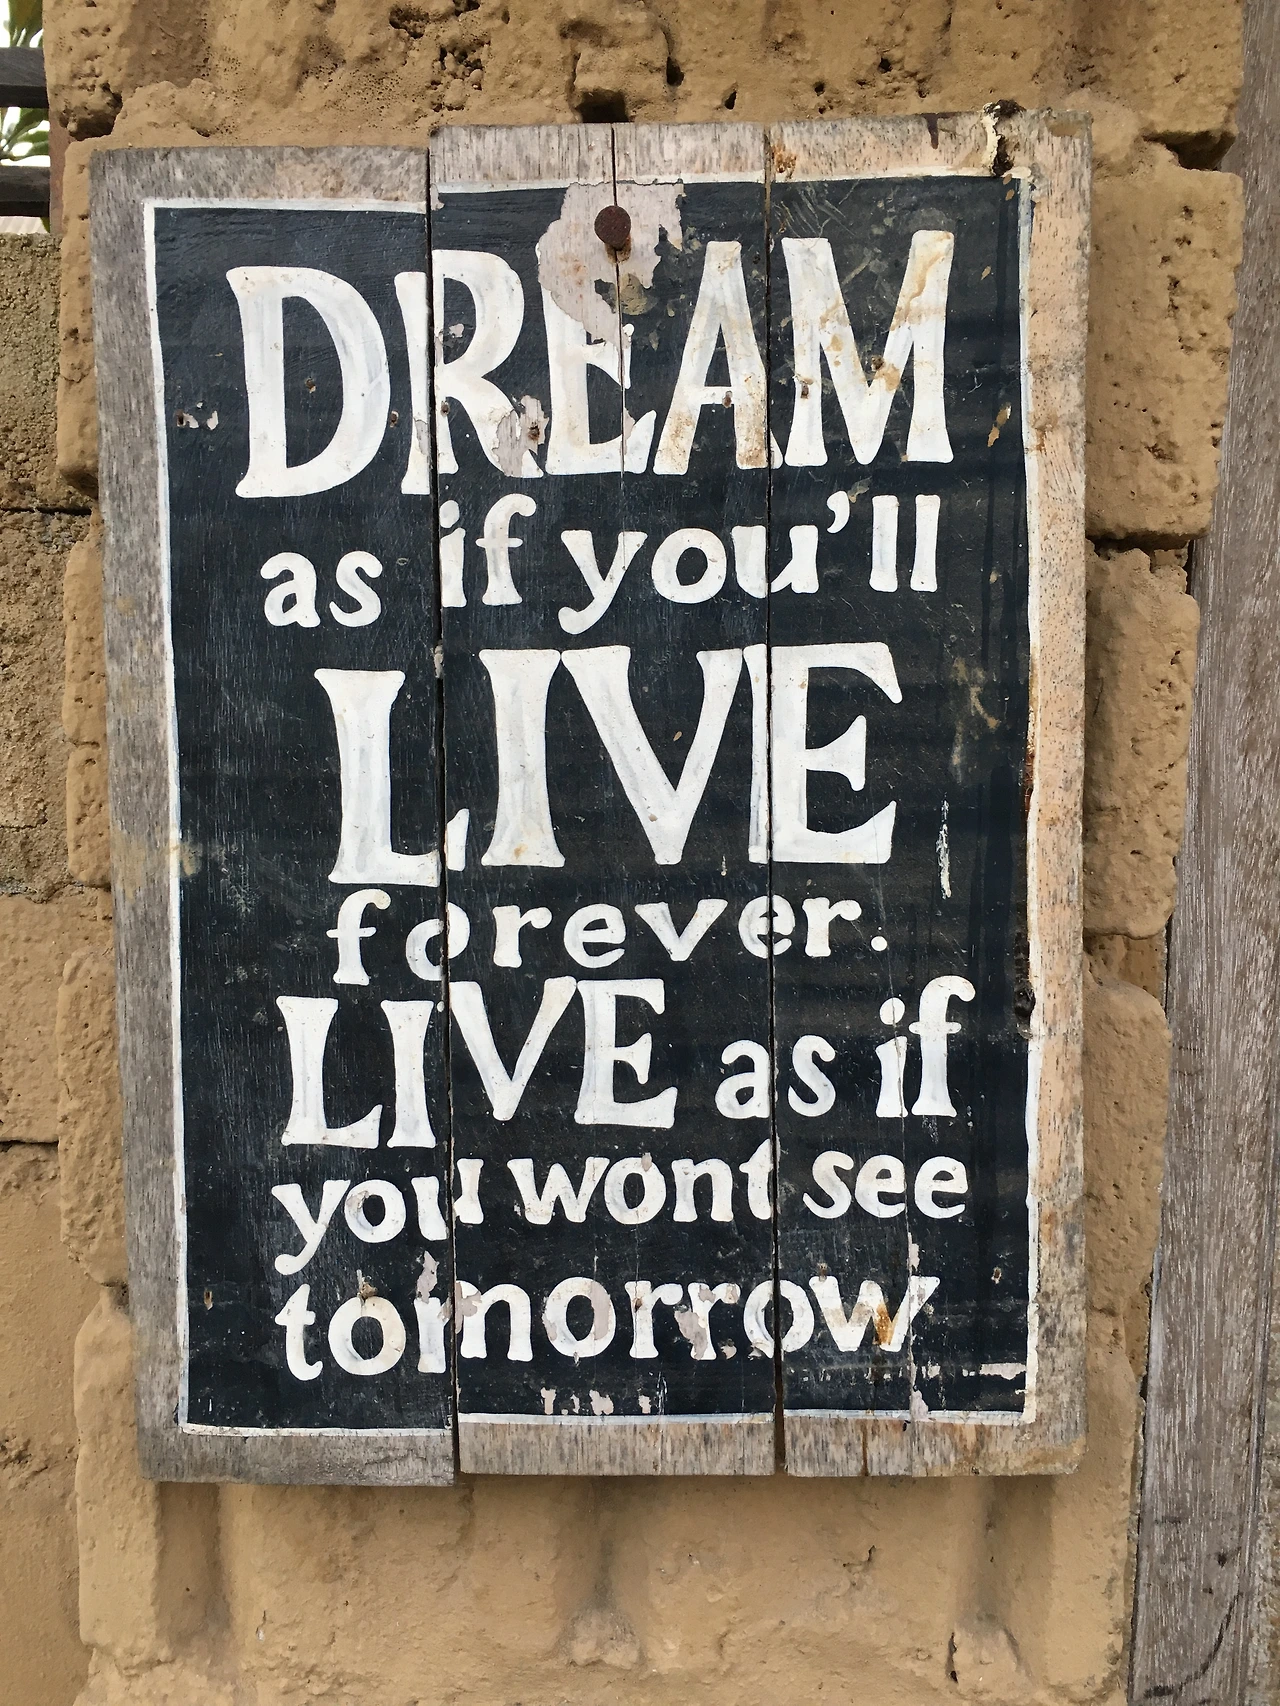 DREAM
as if you'll
LIVE
forever.
LIVE as if
you wont see
tomorrow